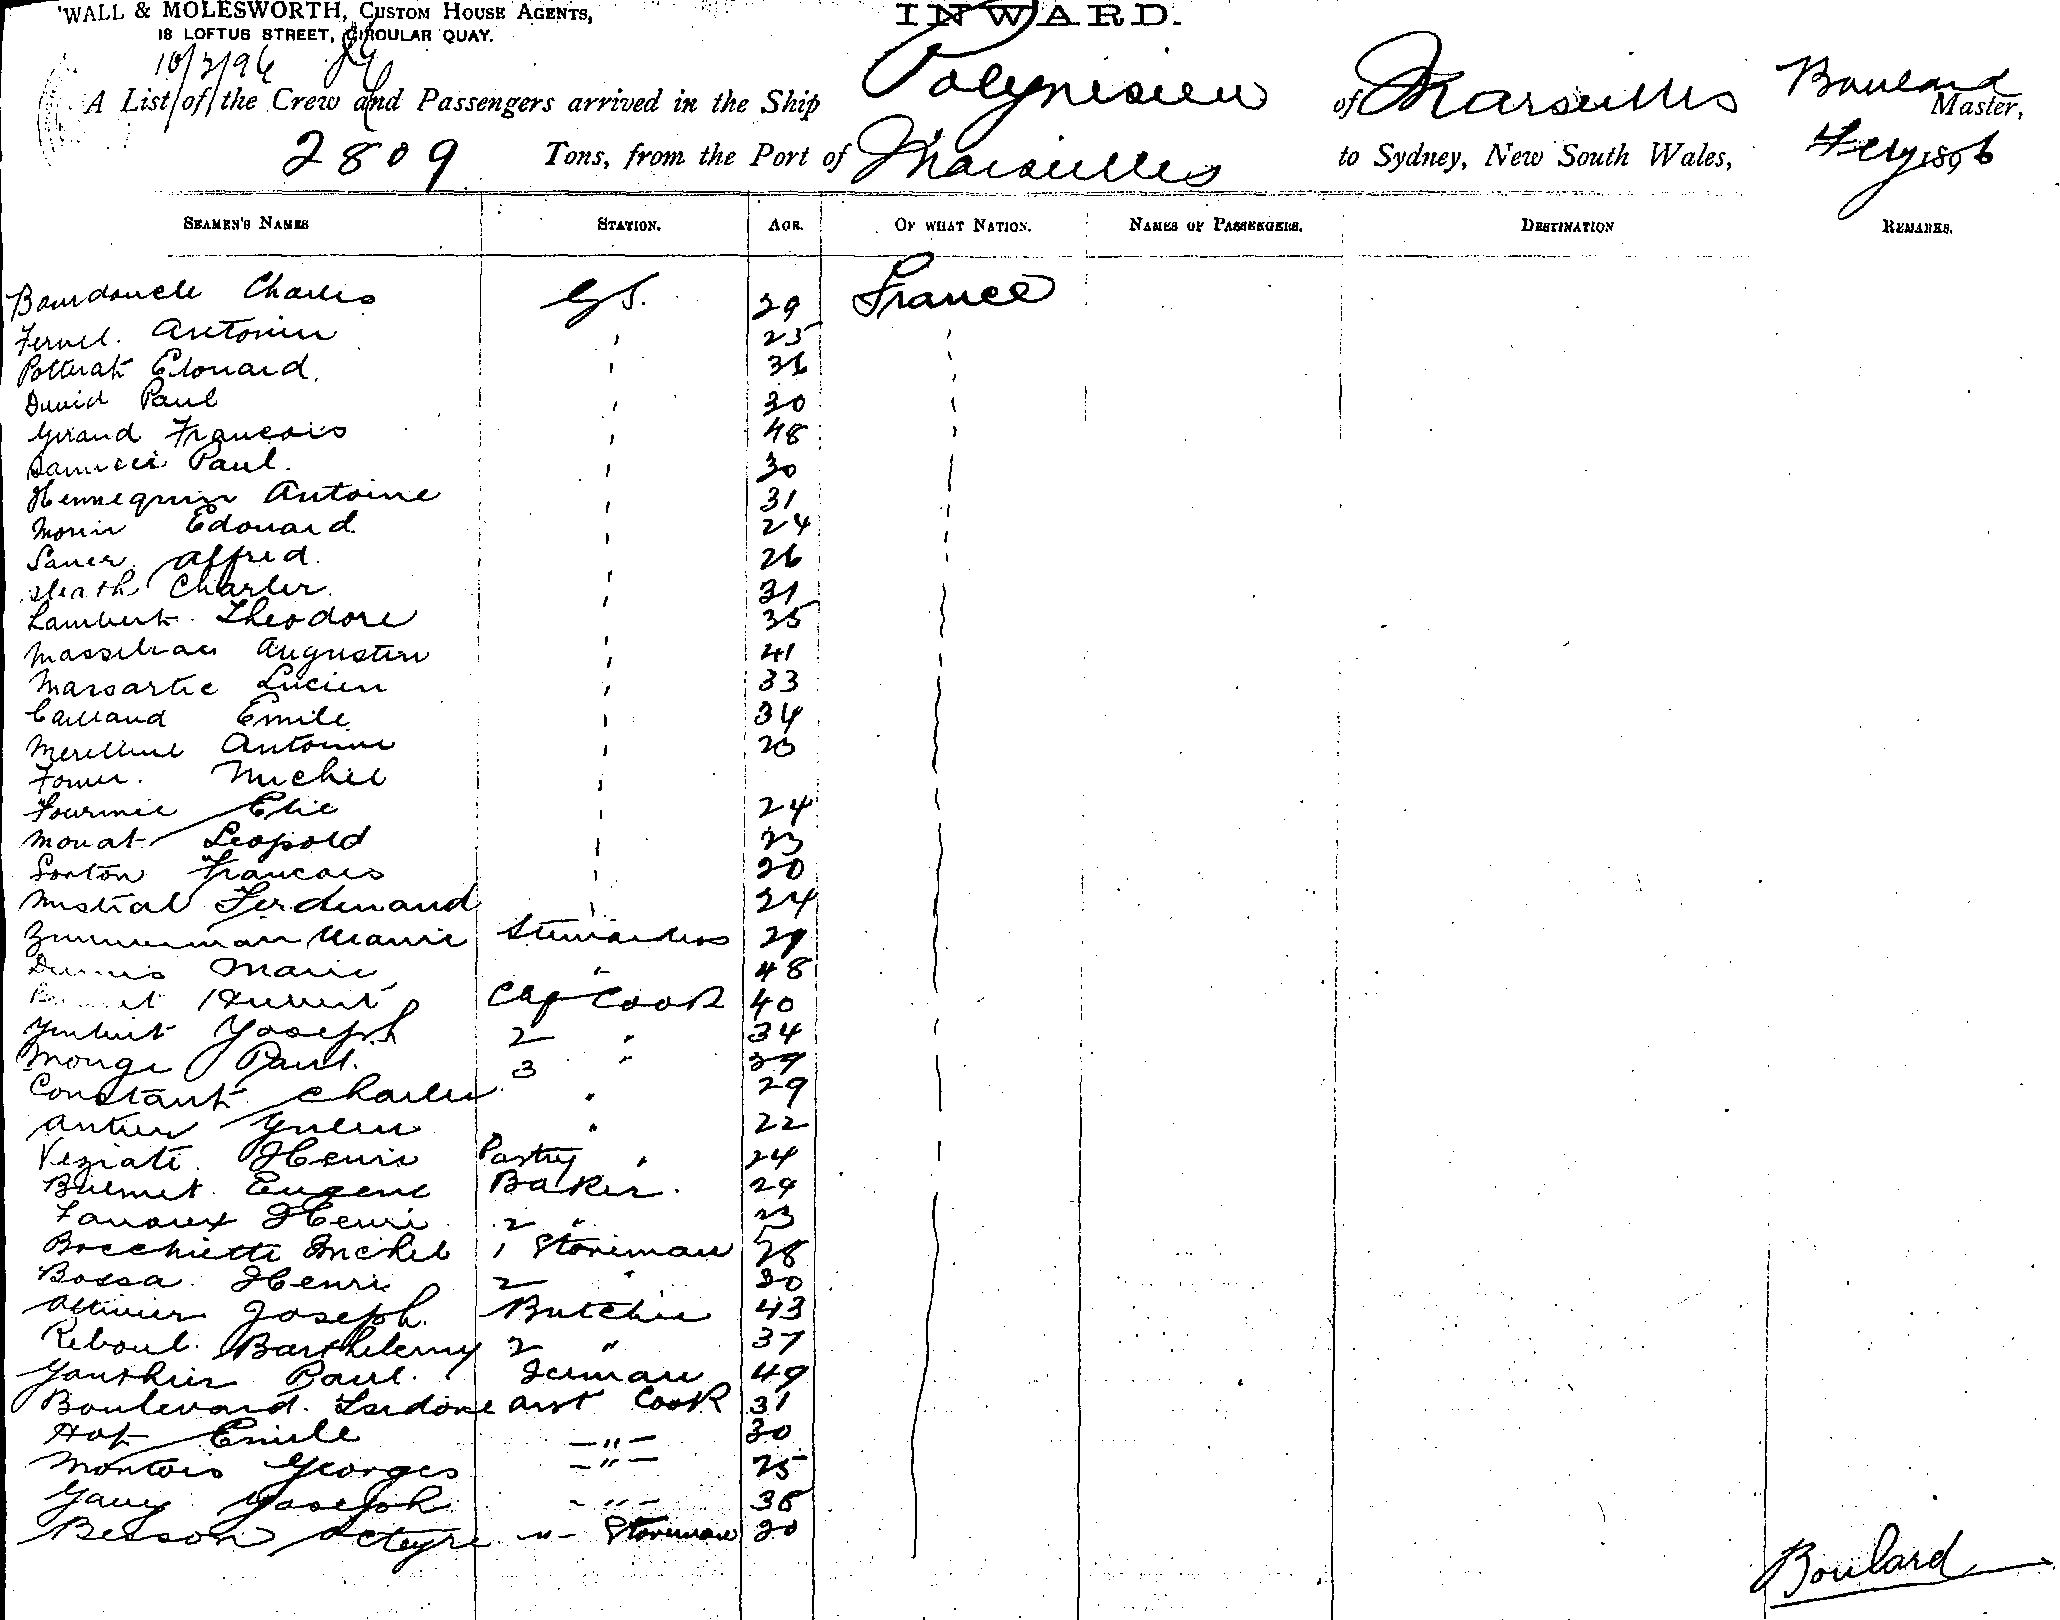 WALL & MOLESWORTH, CUSTOM HOUSE AGENTS,
18 LOFTUS STREET, CIRCULAR QUAY.
INWARD.
10/2/96
A List of the Crew and Passengers arrived in the Ship Polynesien of Marseilles Boulard Master,
2809 Tons, from the Port of Marseilles to Sydney, New South Wales, 1896
SEAMEN'S NAMES STATION. AGE. OF WHAT NATION. NAMES OF PASSENGERS. DESTINATION REMARKS.
Charles GS. 29 France
Antonin 25
Potterat Edouard.
David Paul 30
Girand Francois 48
Paul. 30
Hennequin Antoine 31
Morin Edouard 24
Sauer Alfred. 26
Charles 31
Lambert Theodore 35
Augustin 41
Marsartic Lucien 33
Caillaud Emile 34
Antonin
Michel
Fournie Elie 24
Monat Leopold 23
Sorton Francois 20
Mistral Ferdinand 24
Zimmerman Marie Stewardess 29
Marie " 48
Cook 40
Joseph 2 " 34
Monge Paul. 3 "
Constant Charles " 29
Antier Julien " 22
Veziati Henri Pastry " 24
Eugene Baker. 24
Henri 2 " 23
Bocchietti Michel 1 Storeman 28
Bossa Henri 2 " 30
Ollivier Joseph. Butcher 43
Reboul. Barthelemy 2 " 37
Gauthier Paul. 49
Boulevard. Isidore asst Cook 31
Hot Emile —"— 30
Montois Georges —"— 25
Joseph —"—
Besson —"— Storeman 20
Boulard